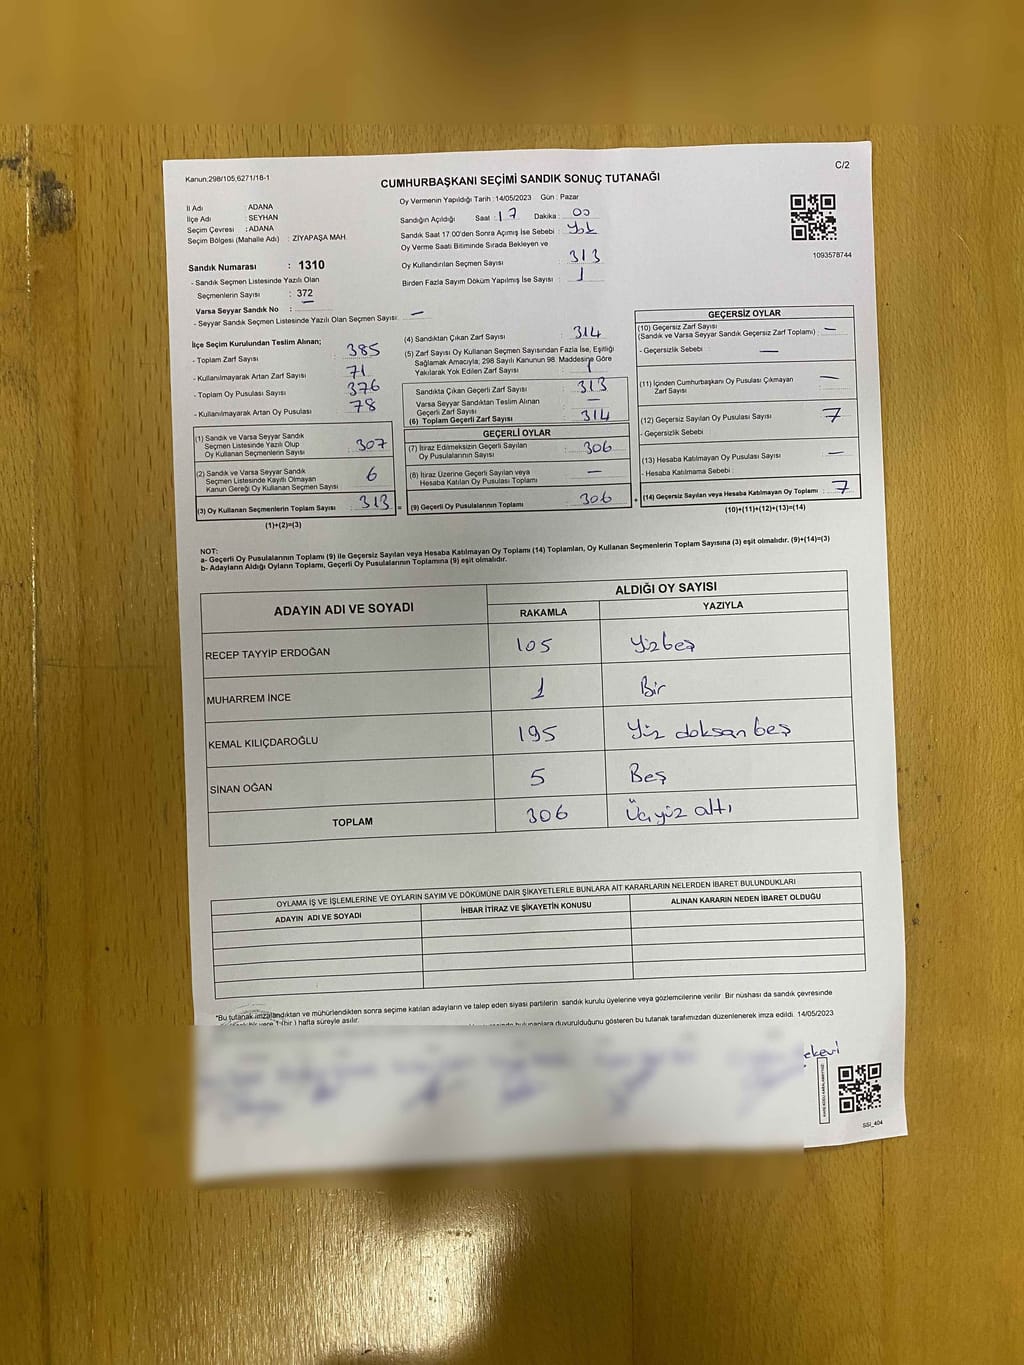 Kanun:298/105,6271/18-1
C/2
CUMHURBAŞKANI SEÇİMİ SANDIK SONUÇ TUTANAĞI
İl Adı : ADANA
İlçe Adı : SEYHAN
Seçim Çevresi : ADANA
Seçim Bölgesi (Mahalle Adı) : ZİYAPAŞA MAH.
Oy Vermenin Yapıldığı Tarih : 14/05/2023 Gün : Pazar
Sandığın Açıldığı Saat : 17 Dakika : 00
Sandık Saat 17:00'den Sonra Açımış İse Sebebi : Yok
Oy Verme Saati Bitiminde Sırada Bekleyen ve
Oy Kullandırılan Seçmen Sayısı : 313
Birden Fazla Sayım Döküm Yapılmış İse Sayısı : 1
1093578744
Sandık Numarası : 1310
- Sandık Seçmen Listesinde Yazılı Olan
Seçmenlerin Sayısı : 372
Varsa Seyyar Sandık No : —
- Seyyar Sandık Seçmen Listesinde Yazılı Olan Seçmen Sayısı: —
İlçe Seçim Kurulundan Teslim Alınan;
- Toplam Zarf Sayısı : 385
- Kullanılmayarak Artan Zarf Sayısı : 71
- Toplam Oy Pusulası Sayısı : 376
- Kullanılmayarak Artan Oy Pusulası : 78
(1) Sandık ve Varsa Seyyar Sandık
Seçmen Listesinde Yazılı Olup
Oy Kullanan Seçmenlerin Sayısı : 307
(2) Sandık ve Varsa Seyyar Sandık
Seçmen Listesinde Kayıtlı Olmayan
Kanun Gereği Oy Kullanan Seçmen Sayısı : 6
(3) Oy Kullanan Seçmenlerin Toplam Sayısı : 313
(1)+(2)=(3)
(4) Sandıktan Çıkan Zarf Sayısı : 314
(5) Zarf Sayısı Oy Kullanan Seçmen Sayısından Fazla İse, Eşitliği
Sağlamak Amacıyla, 298 Sayılı Kanunun 98. Maddesine Göre
Yakılarak Yok Edilen Zarf Sayısı : 1
Sandıkta Çıkan Geçerli Zarf Sayısı : 313
Varsa Seyyar Sandıktan Teslim Alınan
Geçerli Zarf Sayısı : —
(6) Toplam Geçerli Zarf Sayısı : 314
GEÇERLİ OYLAR
(7) İtiraz Edilmeksizin Geçerli Sayılan
Oy Pusulalarının Sayısı : 306
(8) İtiraz Üzerine Geçerli Sayılan veya
Hesaba Katılan Oy Pusulası Toplamı : —
= (9) Geçerli Oy Pusulalarının Toplamı : 306
GEÇERSİZ OYLAR
(10) Geçersiz Zarf Sayısı
(Sandık ve Varsa Seyyar Sandık Geçersiz Zarf Toplamı) : —
- Geçersizlik Sebebi : —
(11) İçinden Cumhurbaşkanı Oy Pusulası Çıkmayan
Zarf Sayısı : —
(12) Geçersiz Sayılan Oy Pusulası Sayısı : 7
- Geçersizlik Sebebi :
(13) Hesaba Katılmayan Oy Pusulası Sayısı : —
- Hesaba Katılmama Sebebi :
+ (14) Geçersiz Sayılan veya Hesaba Katılmayan Oy Toplamı : 7
(10)+(11)+(12)+(13)=(14)
NOT:
a- Geçerli Oy Pusulalarının Toplamı (9) ile Geçersiz Sayılan veya Hesaba Katılmayan Oy Toplamı (14) Toplamları, Oy Kullanan Seçmenlerin Toplam Sayısına (3) eşit olmalıdır. (9)+(14)=(3)
b- Adayların Aldığı Oyların Toplamı, Geçerli Oy Pusulalarının Toplamına (9) eşit olmalıdır.
ADAYIN ADI VE SOYADI
ALDIĞI OY SAYISI
RAKAMLA YAZIYLA
RECEP TAYYİP ERDOĞAN 105 Yüzbeş
MUHARREM İNCE 1 Bir
KEMAL KILIÇDAROĞLU 195 Yüz doksan beş
SİNAN OĞAN 5 Beş
TOPLAM 306 Üçyüz altı
OYLAMA İŞ VE İŞLEMLERİNE VE OYLARIN SAYIM VE DÖKÜMÜNE DAİR ŞİKAYETLERLE BUNLARA AİT KARARLARIN NELERDEN İBARET BULUNDUKLARI
ADAYIN ADI VE SOYADI İHBAR İTİRAZ VE ŞİKAYETİN KONUSU ALINAN KARARIN NEDEN İBARET OLDUĞU
*Bu tutanak imzalandıktan ve mühürlendikten sonra seçime katılan adayların ve talep eden siyasi partilerin sandık kurulu üyelerine veya gözlemcilerine verilir. Bir nüshası da sandık çevresinde
1 (bir) hafta süreyle asılır.
duyurulduğunu gösteren bu tutanak tarafımızdan düzenlenerek imza edildi. 14/05/2023
SSİ_404